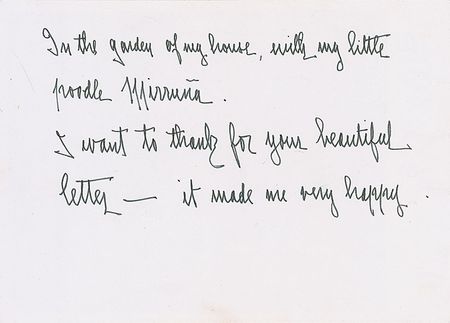 In the garden of my house, with my little
poodle Mirruña.
I want to thank for your beautiful
letter — it made me very happy.